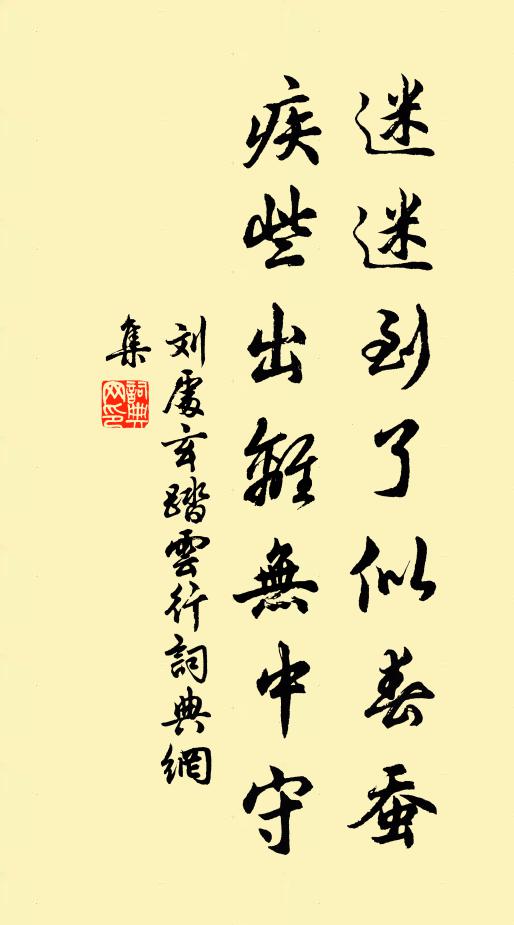 迷迷到了似春蚕
疾些出離無中守
刘處玄踏雲行詞典網
集
詞典網印